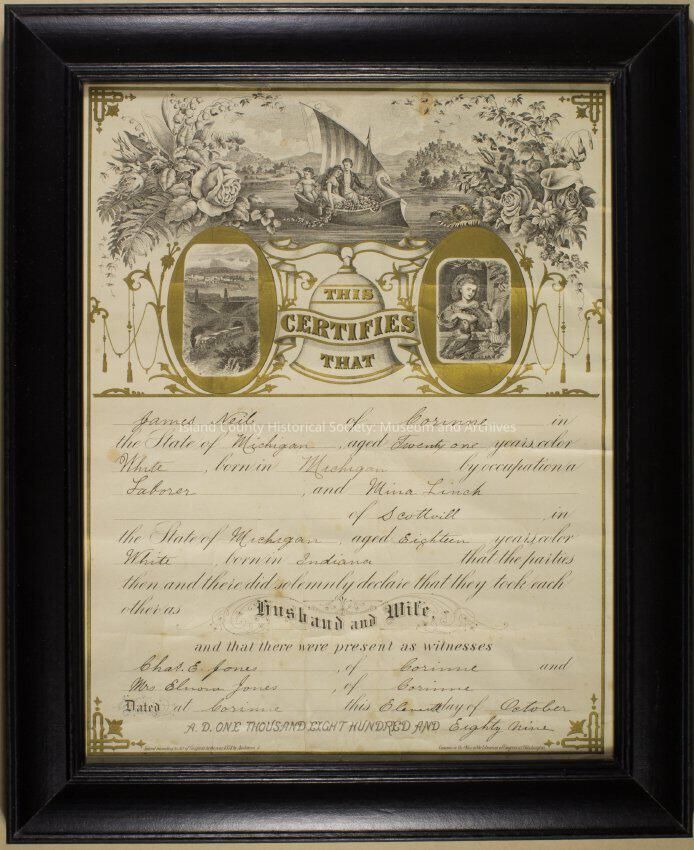 THIS
CERTIFIES
THAT
Island County Historical Society: Museum and Archives
James Neil of Corinne in
the State of Michigan, aged Twenty one years, color
White, born in Michigan by occupation a
Laborer, and Mina Linch
of Scottvill, in
the State of Michigan, aged Eighteen years, color
White, born in Indiana that the parties
then and there did solemnly declare that they took each
other as Husband and Wife
and that there were present as witnesses
Chas. E. Jones, of Corinne and
Mrs. Elnora Jones, of Corinne
Dated at Corinne this day of October
A.D. ONE THOUSAND, EIGHT HUNDRED AND Eighty Nine